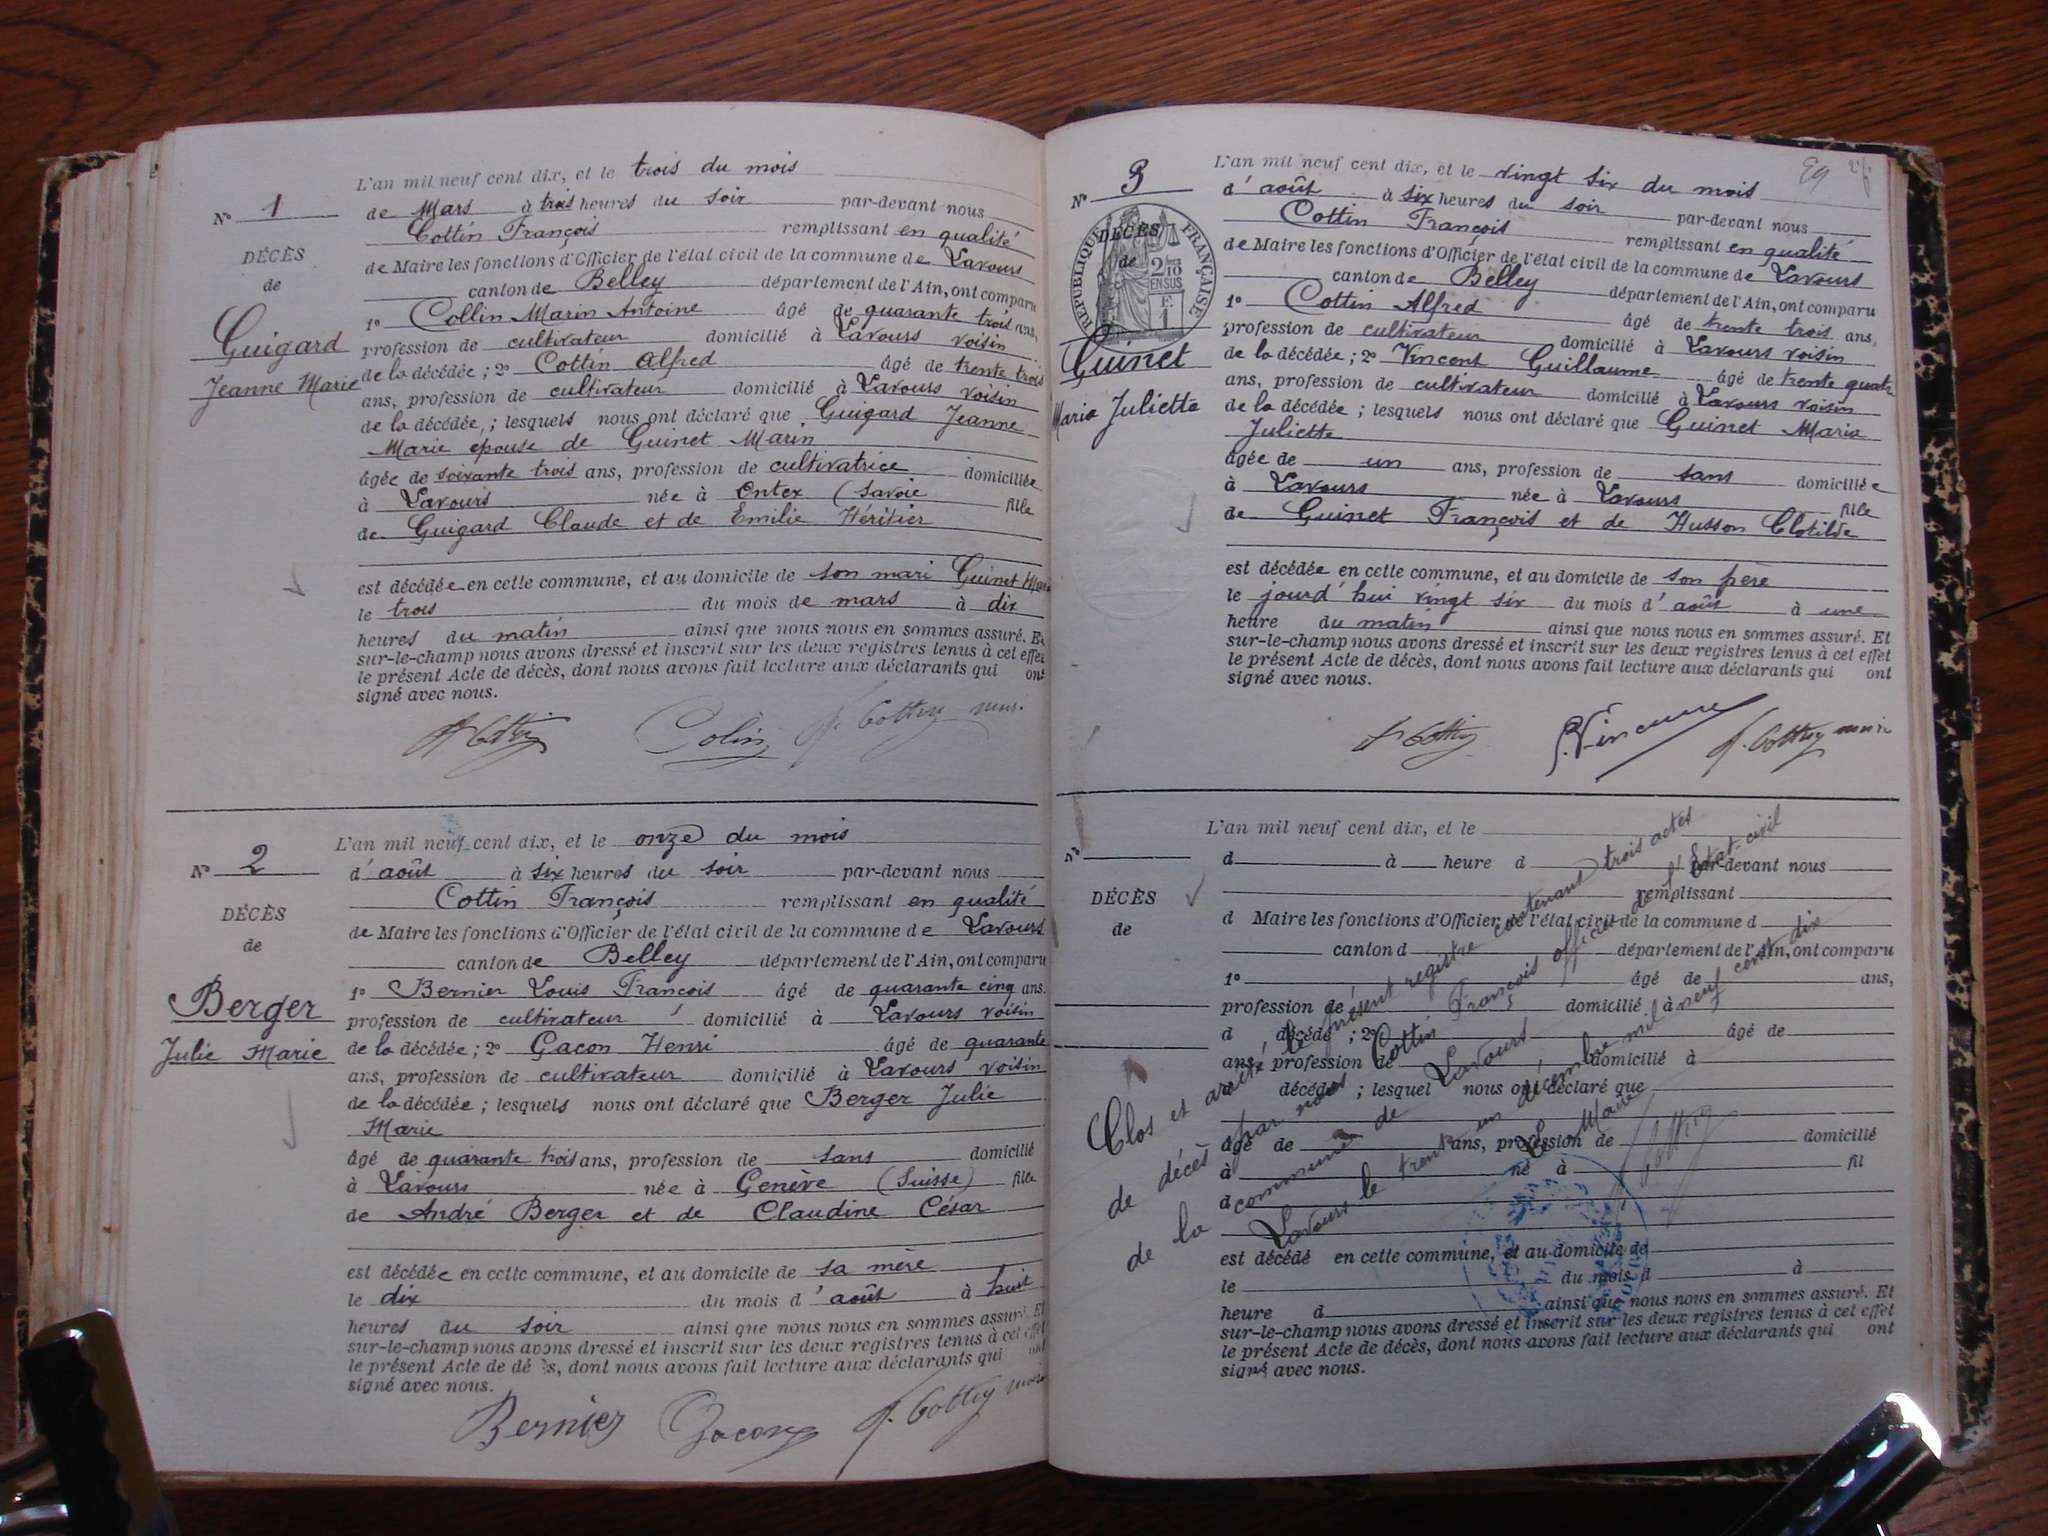 L'an mil neuf cent dix, et le trois du mois
N° 1
de Mars à trois heures du soir par-devant nous
Cottin François remplissant en qualité
DÉCÈS
de
de Maire les fonctions d'Officier de l'état civil de la commune de Lavours
canton de Belley département de l'Ain, ont comparu
Guigard
Jeanne Marie
1° Collin Marin Antoine âgé de quarante trois ans,
profession de cultivateur domicilié à Lavours voisin
de la décédée; 2° Cottin Alfred âgé de trente trois
ans, profession de cultivateur domicilié à Lavours voisin
de la décédée; lesquels nous ont déclaré que Guigard Jeanne
Marie epouse de Guinet Marin
âgée de soixante trois ans, profession de cultivatrice domiciliée
à Lavours née à Ontex (Savoie fille
de Guigard Claude et de Emilie Héritier
est décédée en cette commune, et au domicile de son mari Guinet Marin
le trois du mois de mars à dix
heures du matin ainsi que nous nous en sommes assuré. Et
sur-le-champ nous avons dressé et inscrit sur les deux registres tenus à cet effet
le présent Acte de décès, dont nous avons fait lecture aux déclarants qui ont
signé avec nous.
A Cottin Colin F. Cottin maire
L'an mil neuf cent dix, et le onze du mois
N° 2
d'août à six heures du soir par-devant nous
Cottin François remplissant en qualité
DÉCÈS
de
de Maire les fonctions d'Officier de l'état civil de la commune de Lavours
canton de Belley département de l'Ain, ont comparu
Berger
Julie Marie
1° Bernier Louis François âgé de quarante cinq ans.
profession de cultivateur domicilié à Lavours voisin
de la décédée; 2° Gacon Henri âgé de quarante
ans, profession de cultivateur domicilié à Lavours voisin
de la décédée; lesquels nous ont déclaré que Berger Julie
Marie
âgé de quarante trois ans, profession de sans domicilié
à Lavours née à Genève (Suisse) fille
de André Berger et de Claudine César
est décédée en cette commune, et au domicile de sa mère
le dix du mois d'août à huit
heures du soir ainsi que nous nous en sommes assuré. Et
sur-le-champ nous avons dressé et inscrit sur les deux registres tenus à cet effet
le présent Acte de décès, dont nous avons fait lecture aux déclarants qui ont
signé avec nous.
Bernier Gacon F. Cottin maire
L'an mil neuf cent dix, et le vingt six du mois
N° 3
d'août à six heures du soir par-devant nous
Cottin François remplissant en qualité
DÉCÈS
de
RÉPUBLIQUE FRANÇAISE
2/10 EN SUS
F. 1
de Maire les fonctions d'Officier de l'état civil de la commune de Lavours
canton de Belley département de l'Ain, ont comparu
Guinet
Maria Juliette
1° Cottin Alfred âgé de trente trois ans,
profession de cultivateur domicilié à Lavours voisin
de la décédée; 2° Vincent Guillaume âgé de trente quatre
ans, profession de cultivateur domicilié à Lavours voisin
de la décédée; lesquels nous ont déclaré que Guinet Maria
Juliette
âgée de un ans, profession de sans domiciliée
à Lavours née à Lavours fille
de Guinet François et de Husson Clotilde
est décédée en cette commune, et au domicile de son père
le jourd'hui vingt six du mois d'août à une
heure du matin ainsi que nous nous en sommes assuré. Et
sur-le-champ nous avons dressé et inscrit sur les deux registres tenus à cet effet
le présent Acte de décès, dont nous avons fait lecture aux déclarants qui ont
signé avec nous.
A Cottin G. Vincent F. Cottin maire
L'an mil neuf cent dix, et le
N°
d à heure d par-devant nous
remplissant
DÉCÈS
de
d Maire les fonctions d'Officier de l'état civil de la commune d
canton d département de l'Ain, ont comparu
1° âgé de ans,
profession de domicilié à
d décédé; 2° âgé de
ans, profession de domicilié à
décédé; lesquel nous ont déclaré que
âgé de ans, profession de domicilié
à né à fil
d
est décédé en cette commune, et au domicile de
le du mois d à
heure d ainsi que nous nous en sommes assuré. Et
sur-le-champ nous avons dressé et inscrit sur les deux registres tenus à cet effet
le présent Acte de décès, dont nous avons fait lecture aux déclarants qui ont
signé avec nous.
Clos et arrêté le présent registre contenant trois actes
de décès par nous Cottin François officier de l'Etat-civil
de la commune de Lavours
Lavours le trent un décembre mil neuf cent dix
Le Maire
F. Cottin